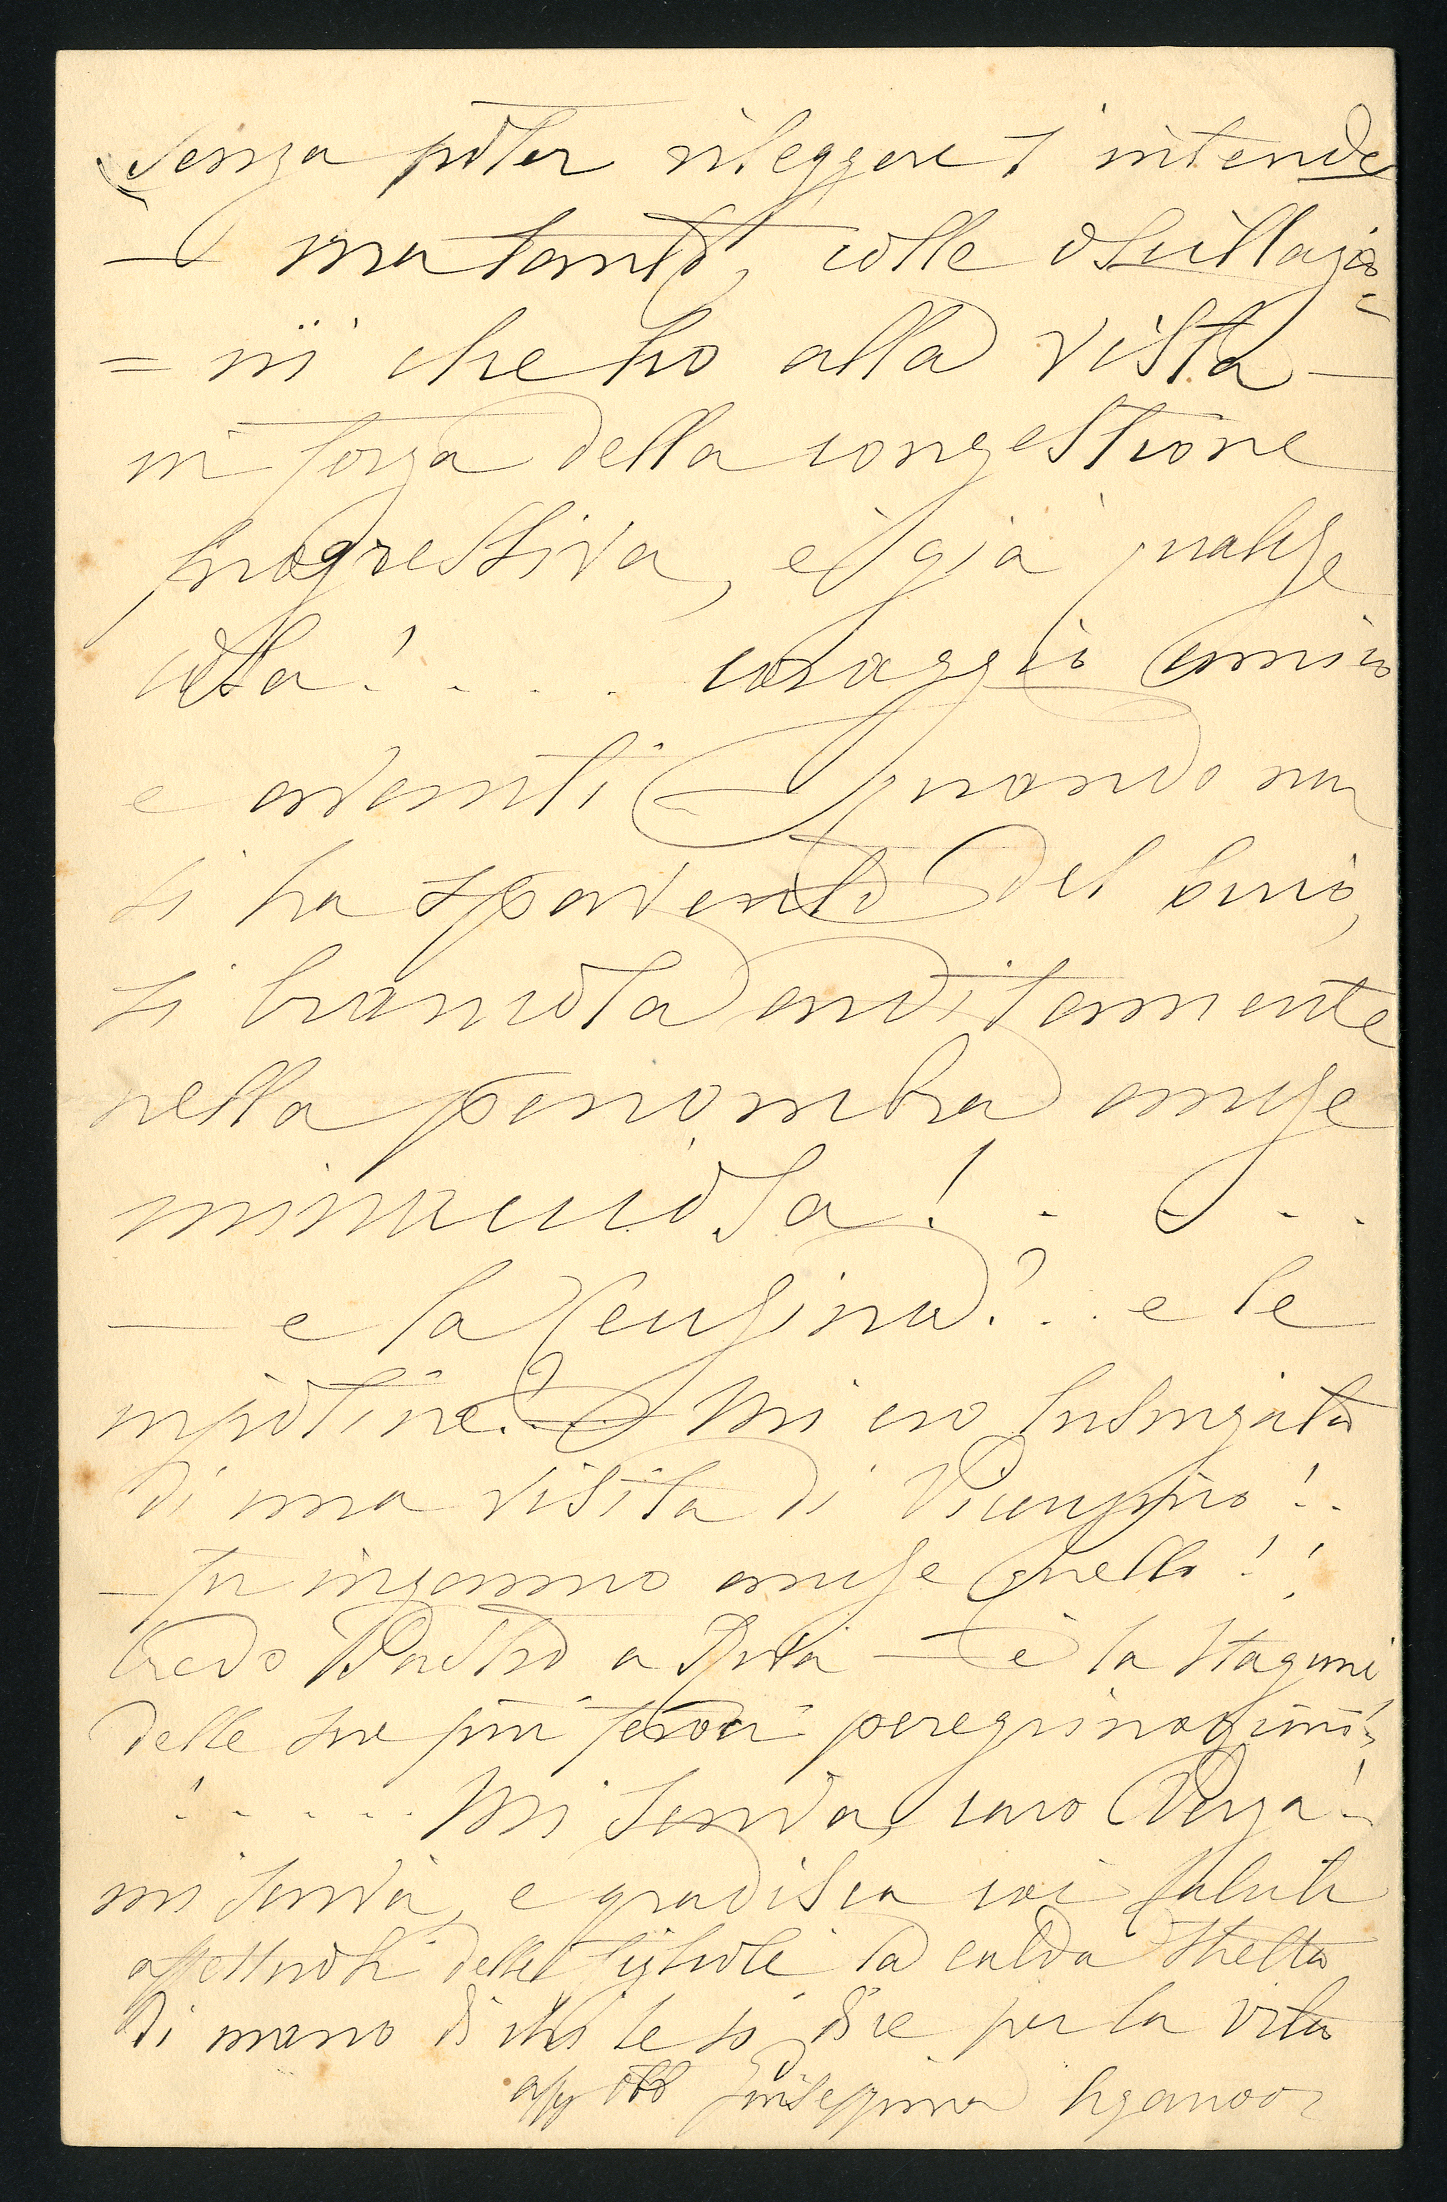 (senza poter rileggere s'intende
— ma tanto, colle oscillazio=
= ni che ho alla vista —
in forza della congestione
progressiva, è già qualche
cosa! . . . coraggio amico
e avanti — quando non
si ha spavento del buio,
si brancola arditamente
nella penombra anche
minacciosa! . . . .
— e la Cengina? . . e le
nipotine? . . Mi ero lusingata
di una visita di Vicenzino! .
— fu inganno anche quello! !
Credo a — è la stagione
delle sue più peregrinazioni
! . . . . . Mi scriva, caro
mi scriva, e gradisca coi saluti
affettuosi delle figliole la calda stretta
di mano di chi le si dice per la vita
aff obb Giuseppina